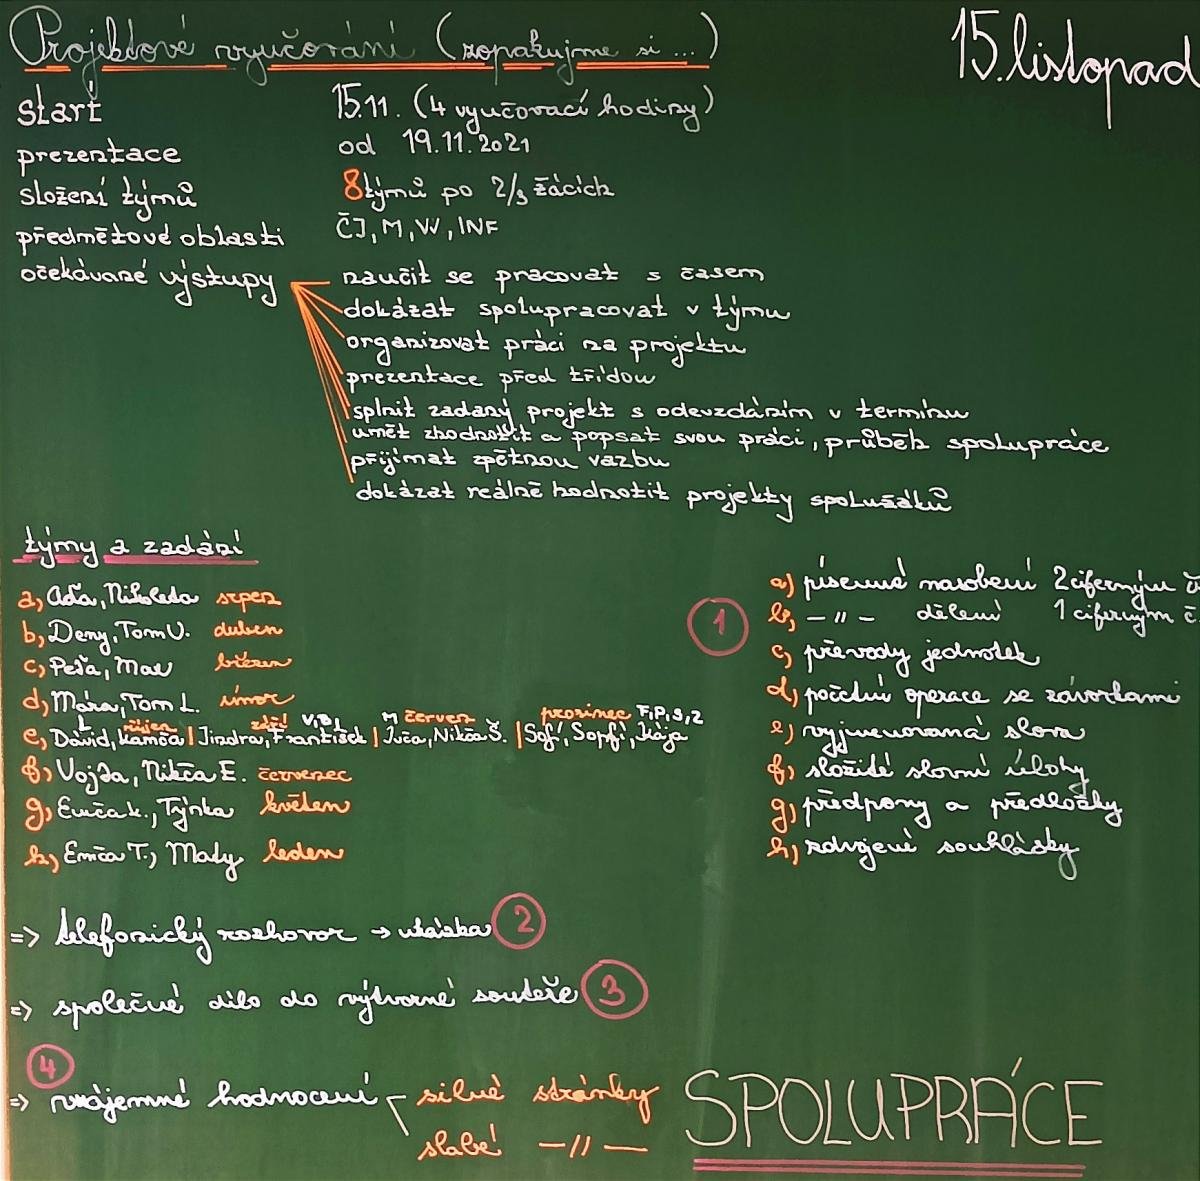 Projektové vyučování (zopakujme si ...)
15. listopad
start 15.11. (4 vyučovací hodiny)
prezentace od 19.11.2021
složení týmů 8 týmů po 2/3 žácích
předmětové oblasti ČJ, M, VV, INF
očekávané výstupy naučit se pracovat s časem
dokázat spolupracovat v týmu
organizovat práci na projektu
prezentace před třídou
splnit zadaný projekt s odevzdáním v termínu
umět zhodnotit a popsat svou práci, průběh spolupráce
přijímat zpětnou vazbu
dokázat reálně hodnotit projekty spolužáků
týmy a zadání
a) Aďa, Nikoleta srpen
b) Deny, Tom V. duben
c) Peťa, Max březen
d) Mára, Tom L. únor
e) David, Kamča říjen | Jindra, František září V, B, L | Iuča, Nikča Š. M červen | Sofi, Sopfi, Kája prosinec F, P, S, Z
f) Vojta, Nikča E. červenec
g) Emča K., Týnka květen
h) Emča T., Maty leden
1
a) písemné násobení 2 ciferným č
b) -//- dělení 1 ciferným č.
c) převody jednotek
d) početní operace se závorkami
e) vyjmenovaná slova
f) složité slovní úlohy
g) předpony a předložky
h) zdvojené souhlásky
=> telefonický rozhovor → ukázka 2
=> společné dílo do výtvarné soutěže 3
4
=> vzájemné hodnocení silné stránky
slabé -//-
SPOLUPRÁCE